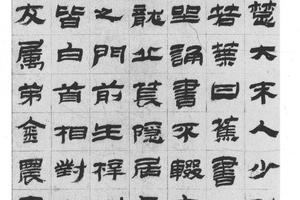 楚大末人少
若葉曰蕉書
坐誦書不輟
龍丘萇隱居
之門前生梓
皆白首相對
友屬弟金農